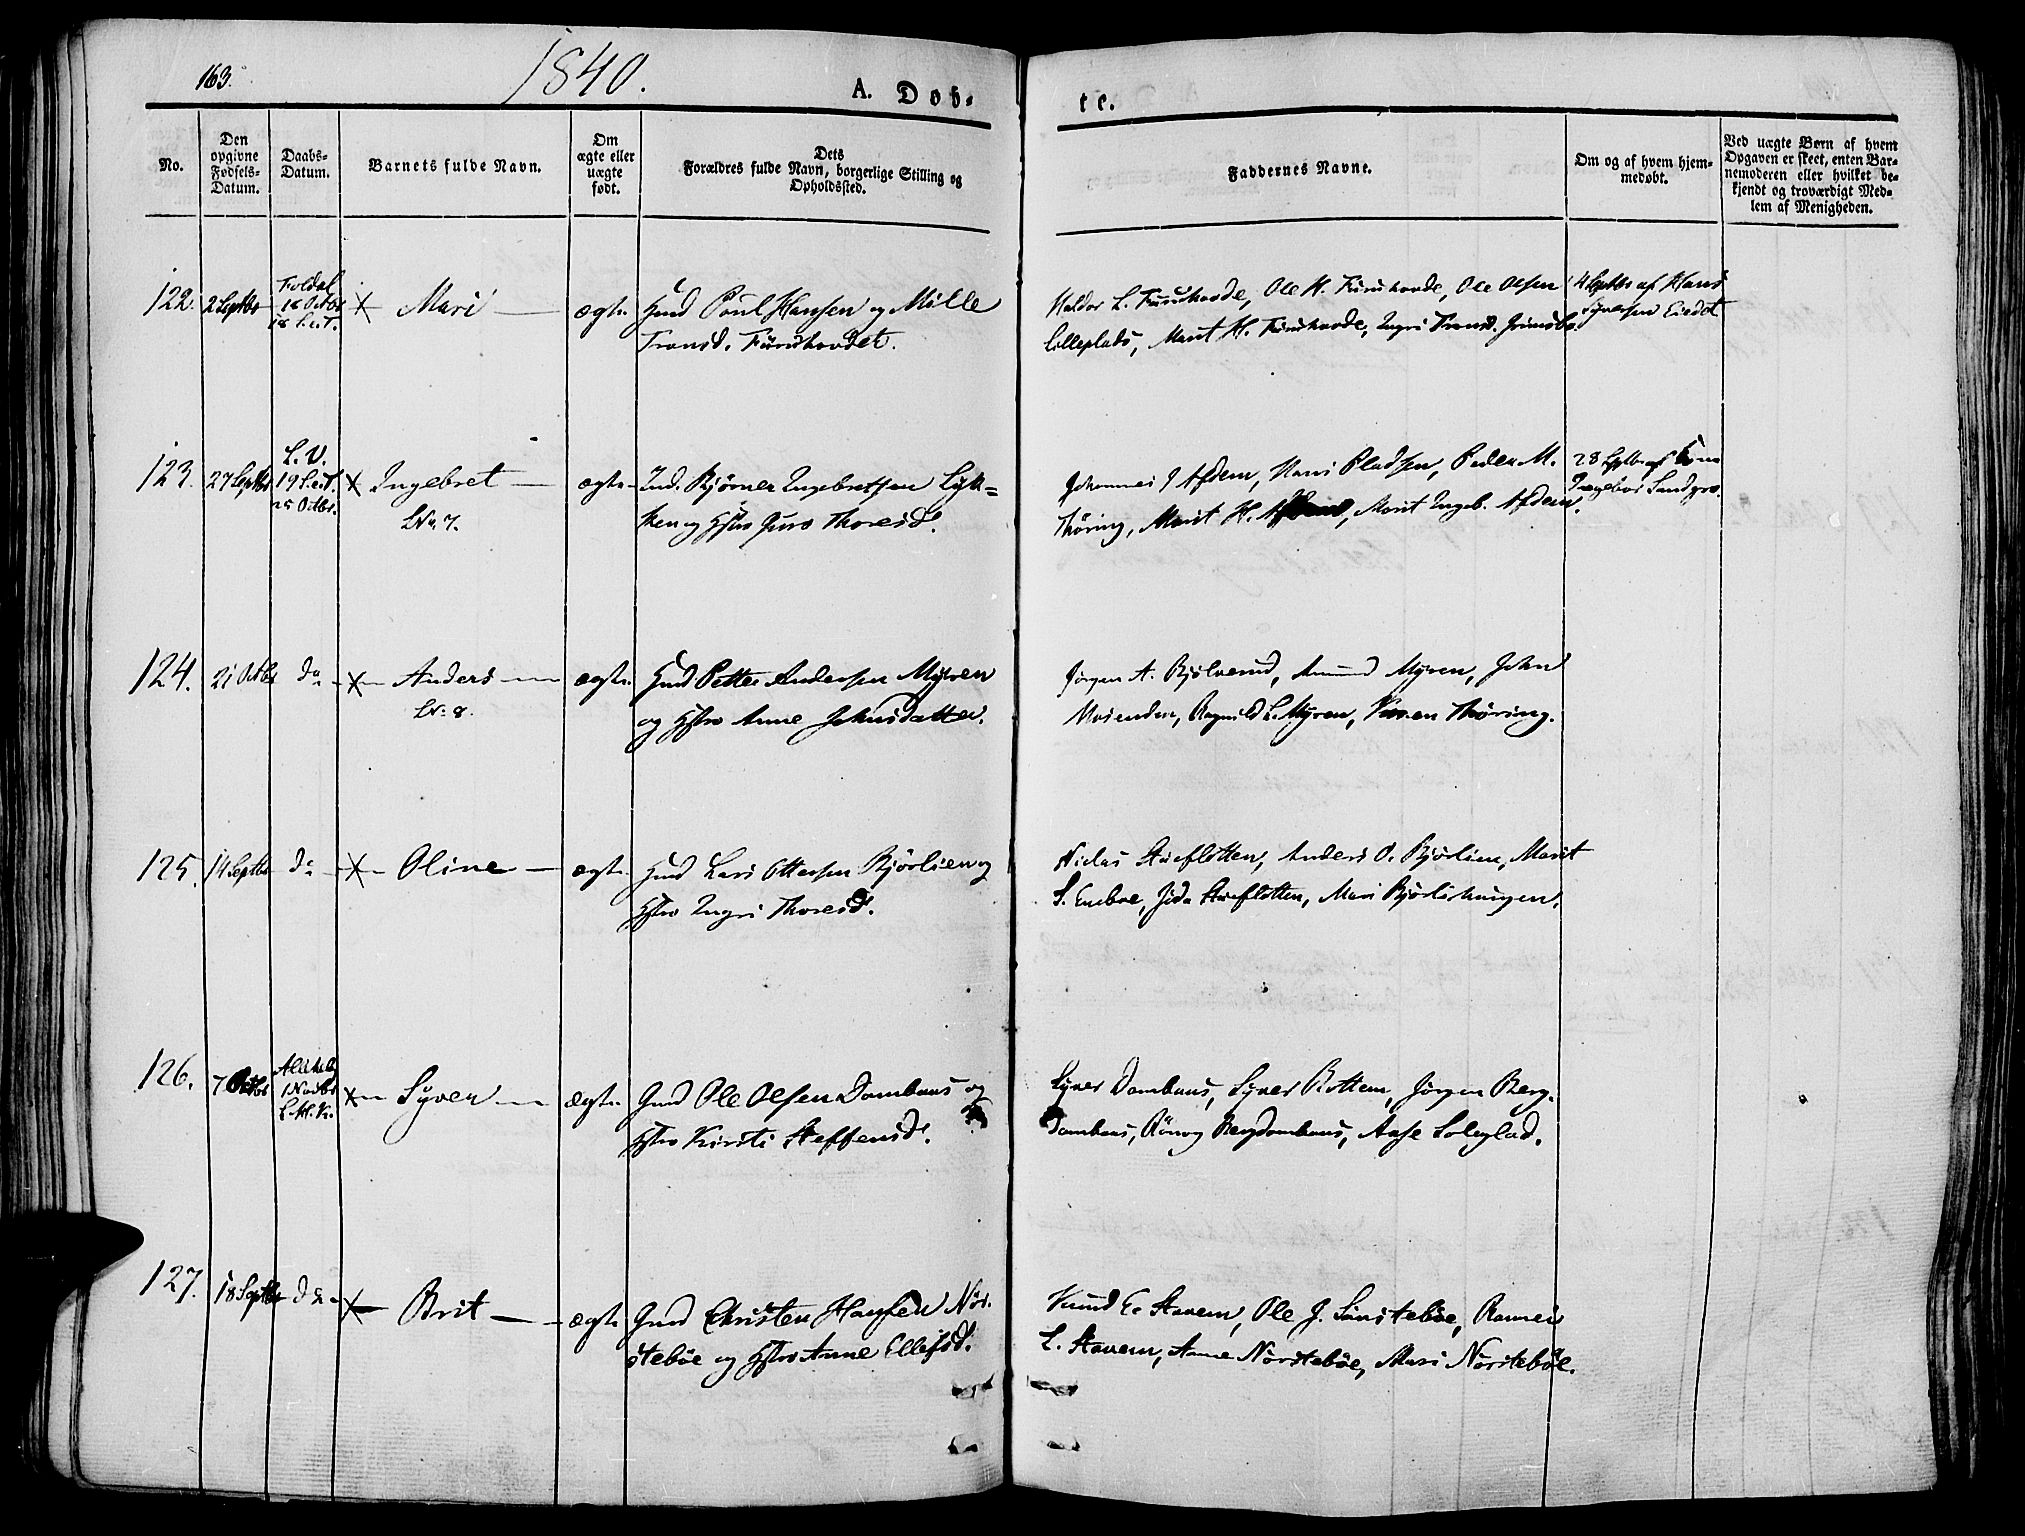 163.
1840.
A. Döb-
te.
No.
Den opgivne Fødsels-Datum.
Daabs-Datum.
Barnets fulde Navn.
Om ægte eller uægte født.
Dets Forældres fulde Navn, borgerlige Stilling og Opholdssted.
Faddernes Navne.
Om og af hvem hjem-medøbt.
Ved uægte Børn af hvem Opgaven er skeet, enten Bar-nemoderen eller hvilket be-kjendt og troværdigt Med-lem af Menigheden.
122. 2 Septbr Foldal 18 Octbr Mari ægte Gmd Poul Hansen og Mille
Tronsd. Furuhovdet.
Haldor L. Furuhovde, Ole H. Furuhovde, Ole Olsen
Lilleplads, Marit H. Furuhovde, Ingri Tronsd. Grimsbo.
4 Septbr af Hans
Syversen Eiedet
123. 27 Septbr L. V. 19 S.e.T. 25 Octbr. Ingebret ægte Ind. Bjørner Ingebretsen Lyk-
ken og Hstro Guro Thoresd.
LNr. 7.
Johannes J Afdem, Hans Pladsen, Peder M.
Thøring, Marit H., Marit Ingeb. Afdem.
28 Septbr af
Ingebor
124. 21 Octbr do Anders ægte Gmd Petter Andersen Myren
og Hstro Anne Johnsdatter.
LNr 8.
Jørgen A. Bjølverud, Amund Myren, John
Mosenden, Ragnild L. Myren, Karen Thøring.
125. 14 Septbr do Oline ægte Gmd Lars Ottersen Bjørlien og
Hstro Ingri Thoresd.
Niclas Stueflotten, Anders O. Bjørlien, Marit
S. Eneboe, Jida Stueflotten, Mari Bjørlihaugen.
126. 7 Octbr Allehelg 1 Novbr L.H.K. Syver ægte Gmd Ole Olsen Dombaas og
Hstro Kirsti Steffensd.
Syver Dombaas, Syver Bottem, Jørgen Berg-
Dombaas, Rønog Bergdombaas, Aase Soleglad.
127. 18 Septbr do Brit ægte Gmd Christen Hansen Nør-
stebøe og Hstro Anne Ellefsd.
Knud E. Stavem, Ole J. Sønstebøe, Rannei
E. Stavem, Anne Nørstebøe, Mari Nørstebøe.